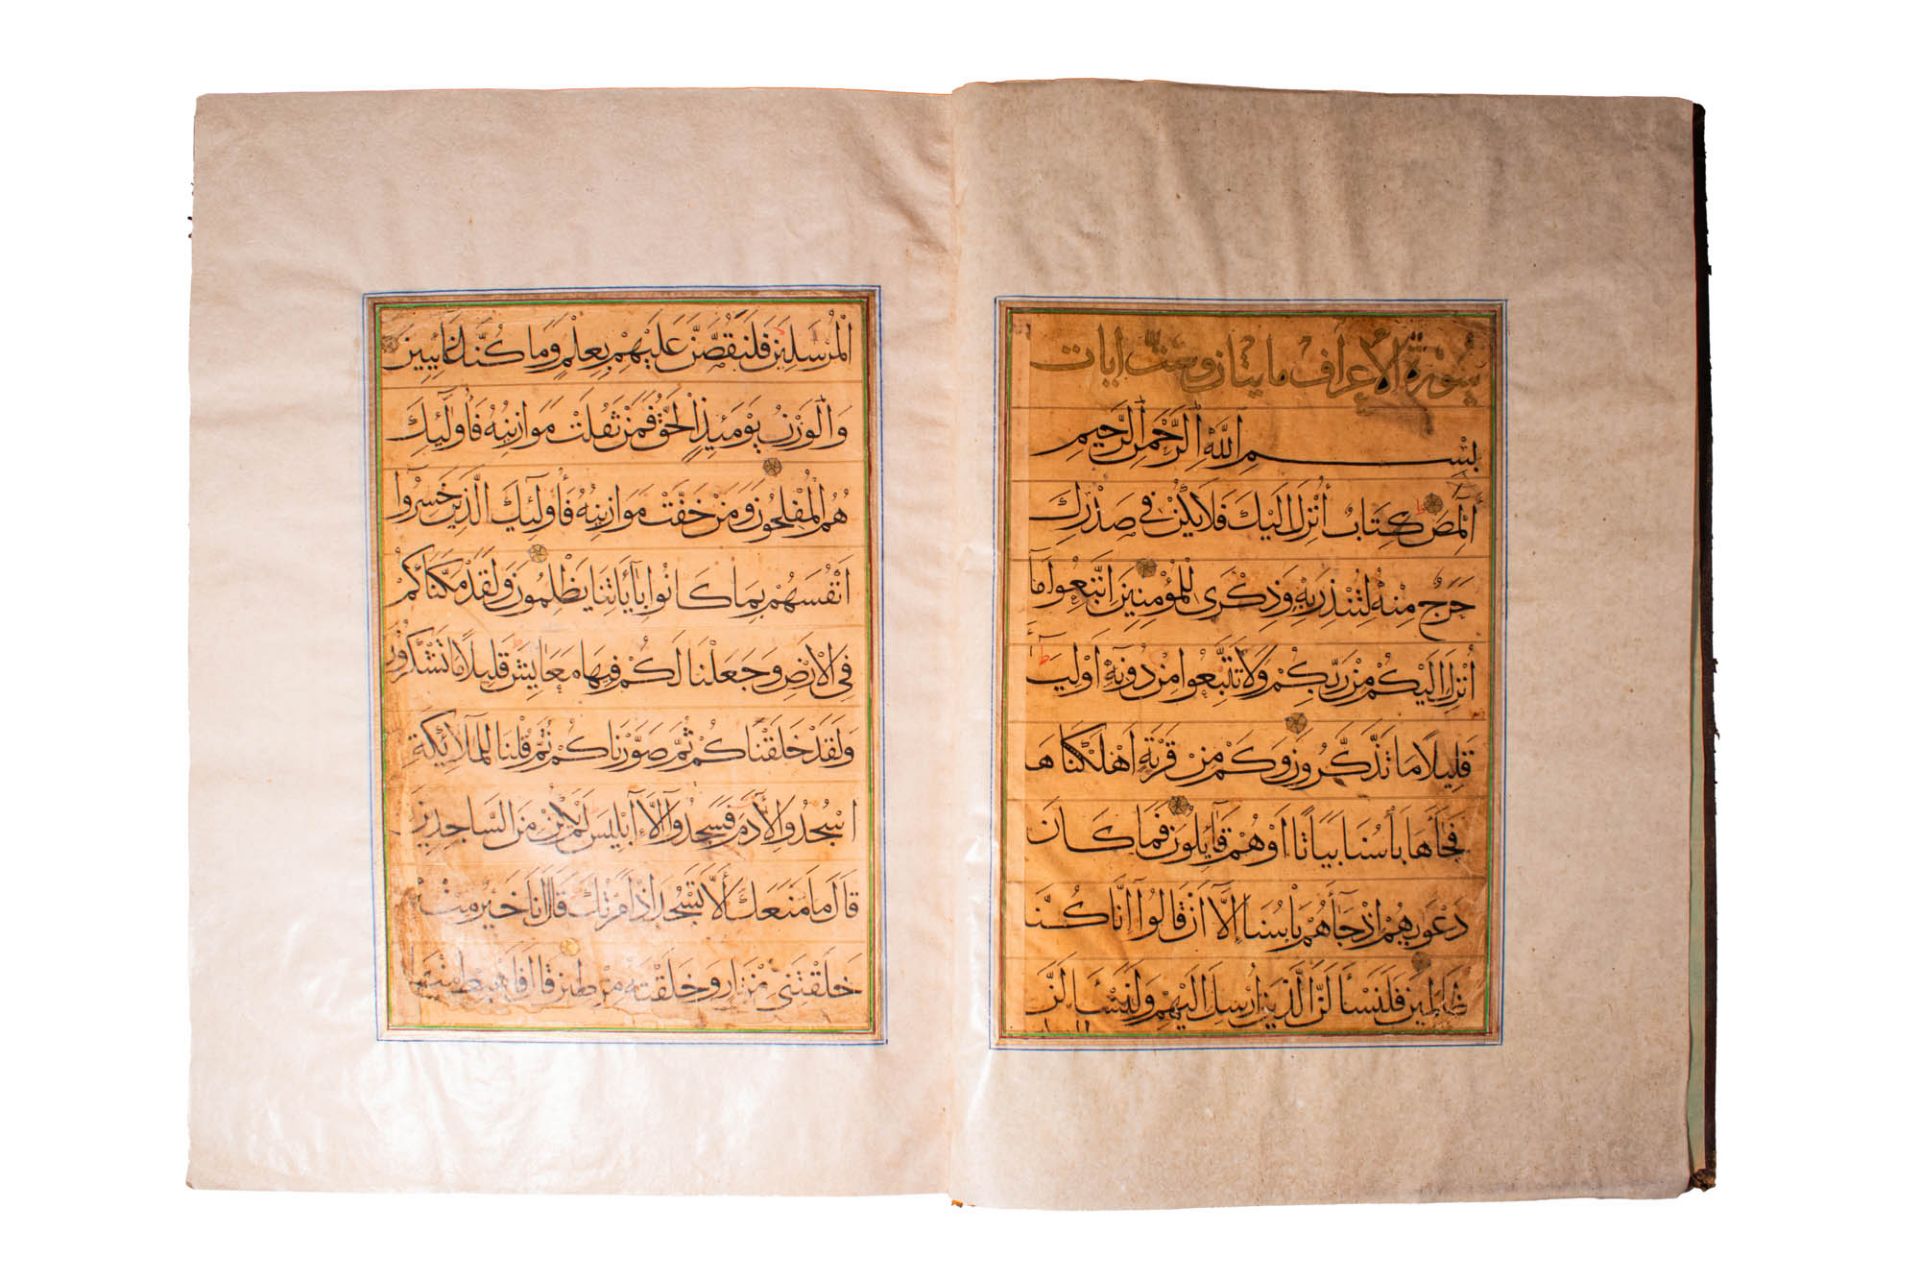 سورة الاعراف مايتان وست ايات
بِسْمِ اللَّهِ الرَّحْمٰنِ الرَّحِيمِ
الٓمٓصٓ كِتَابٌ أُنْزِلَ إِلَيْكَ فَلَا يَكُنْ فِي صَدْرِكَ
حَرَجٌ مِنْهُ لِتُنْذِرَ بِهِ وَذِكْرَى لِلْمُؤْمِنِينَ اتَّبِعُوا مَا
أُنْزِلَ إِلَيْكُمْ مِنْ رَبِّكُمْ وَلَا تَتَّبِعُوا مِنْ دُونِهِ أَوْلِيَآءَ
قَلِيلًا مَا تَذَكَّرُونَ وَكَمْ مِنْ قَرْيَةٍ أَهْلَكْنَاهَا
فَجَآءَهَا بَأْسُنَا بَيَاتًا أَوْ هُمْ قَآئِلُونَ فَمَا كَانَ
دَعْوَيهُمْ إِذْ جَآءَهُمْ بَأْسُنَا إِلَّآ أَنْ قَالُوٓا إِنَّا كُنَّا
ظَالِمِينَ فَلَنَسْأَلَنَّ الَّذِينَ أُرْسِلَ إِلَيْهِمْ وَلَنَسْأَلَنَّ
الْمُرْسَلِينَ فَلَنَقُصَّنَّ عَلَيْهِمْ بِعِلْمٍ وَمَا كُنَّا غَآئِبِينَ
وَالْوَزْنُ يَوْمَئِذٍ الْحَقُّ فَمَنْ ثَقُلَتْ مَوَازِينُهُ فَأُولٰٓئِكَ
هُمُ الْمُفْلِحُونَ وَمَنْ خَفَّتْ مَوَازِينُهُ فَأُولٰٓئِكَ الَّذِينَ خَسِرُوٓا
أَنْفُسَهُمْ بِمَا كَانُوا بِآيَاتِنَا يَظْلِمُونَ وَلَقَدْ مَكَّنَّاكُمْ
فِي الْأَرْضِ وَجَعَلْنَا لَكُمْ فِيهَا مَعَايِشَ قَلِيلًا مَا تَشْكُرُونَ
وَلَقَدْ خَلَقْنَاكُمْ ثُمَّ صَوَّرْنَاكُمْ ثُمَّ قُلْنَا لِلْمَلَآئِكَةِ
اسْجُدُوا لِآدَمَ فَسَجَدُوٓا إِلَّآ إِبْلِيسَ لَمْ يَكُنْ مِنَ السَّاجِدِينَ
قَالَ مَا مَنَعَكَ أَلَّا تَسْجُدَ إِذْ أَمَرْتُكَ قَالَ أَنَا خَيْرٌ مِنْهُ
خَلَقْتَنِي مِنْ نَارٍ وَخَلَقْتَهُ مِنْ طِينٍ قَالَ فَاهْبِطْ مِنْهَا